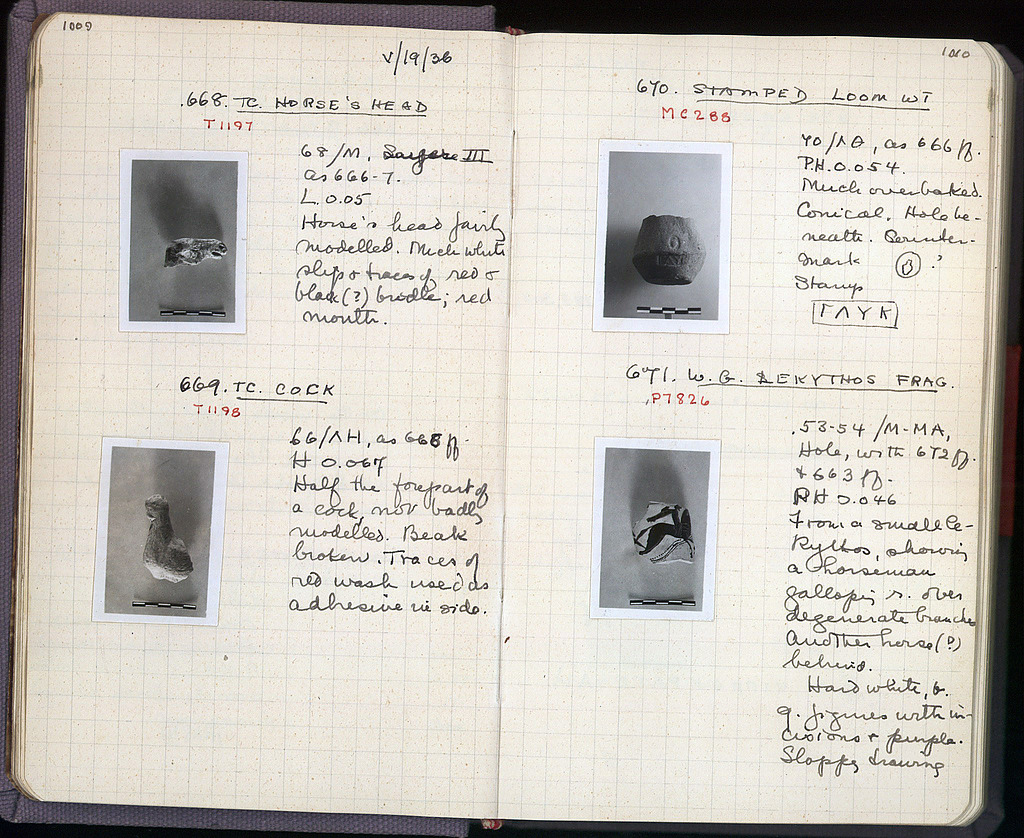 1009
V/19/36
668. TC. HORSE'S HEAD
T1197
68/M,
III
as 666-7.
L. 0.05
Horse's head fairly
modelled. Much white
slip & traces of red &
black (?) bridle; red
mouth.
669. TC. COCK
T1198
66/ΛH, as 668 ff.
H 0.067
Half the forepart of
a cock, not badly
modelled. Beak
broken. Traces of
red wash used as
adhesive in side.
1010
670. STAMPED LOOM WT
MC288
70/ΛΘ, as 666 ff.
P.H. 0.054.
Much overbaked.
Conical. Hole be-
neath.
mark ?
Stamp
ΓΛΥΚ
671. W. G. LEKYTHOS FRAG.
P7826
53-54/M-MA,
Hole, with 672 ff.
& 663 ff.
PH 0.046
From a small le-
kythos, showing
a horseman
galloping r. over
degenerate branches
Another horse (?)
behind.
Hard white, b.
g. figures with in-
cisions & purple.
Sloppy drawing